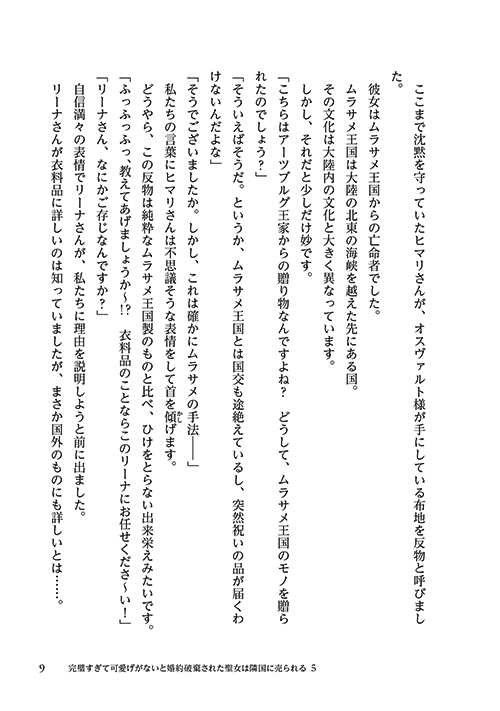 ここまで沈黙を守っていたヒマリさんが、オスヴァルト様が手にしている布地を反物と呼びまし
た。
彼女はムラサメ王国からの亡命者でした。
ムラサメ王国は大陸の北東の海峡を越えた先にある国。
その文化は大陸内の文化と大きく異なっています。
しかし、それだと少しだけ妙です。
「こちらはアーツブルグ王家からの贈り物なんですよね？　どうして、ムラサメ王国のモノを贈ら
れたのでしょう？」
「そういえばそうだ。というか、ムラサメ王国とは国交も途絶えているし、突然祝いの品が届くわ
けないんだよな」
「そうでございましたか。しかし、これは確かにムラサメの手法――」
私たちの言葉にヒマリさんは不思議そうな表情をして首を傾かしげます。
どうやら、この反物は純粋なムラサメ王国製のものと比べ、ひけをとらない出来栄えみたいです。
「ふっふっふっ、教えてあげましょうか～!?　衣料品のことならこのリーナにお任せくださ～い！」
「リーナさん、なにかご存じなんですか？」
自信満々の表情でリーナさんが、私たちに理由を説明しようと前に出ました。
リーナさんが衣料品に詳しいのは知っていましたが、まさか国外のものにも詳しいとは……。
9　完璧すぎて可愛げがないと婚約破棄された聖女は隣国に売られる 5